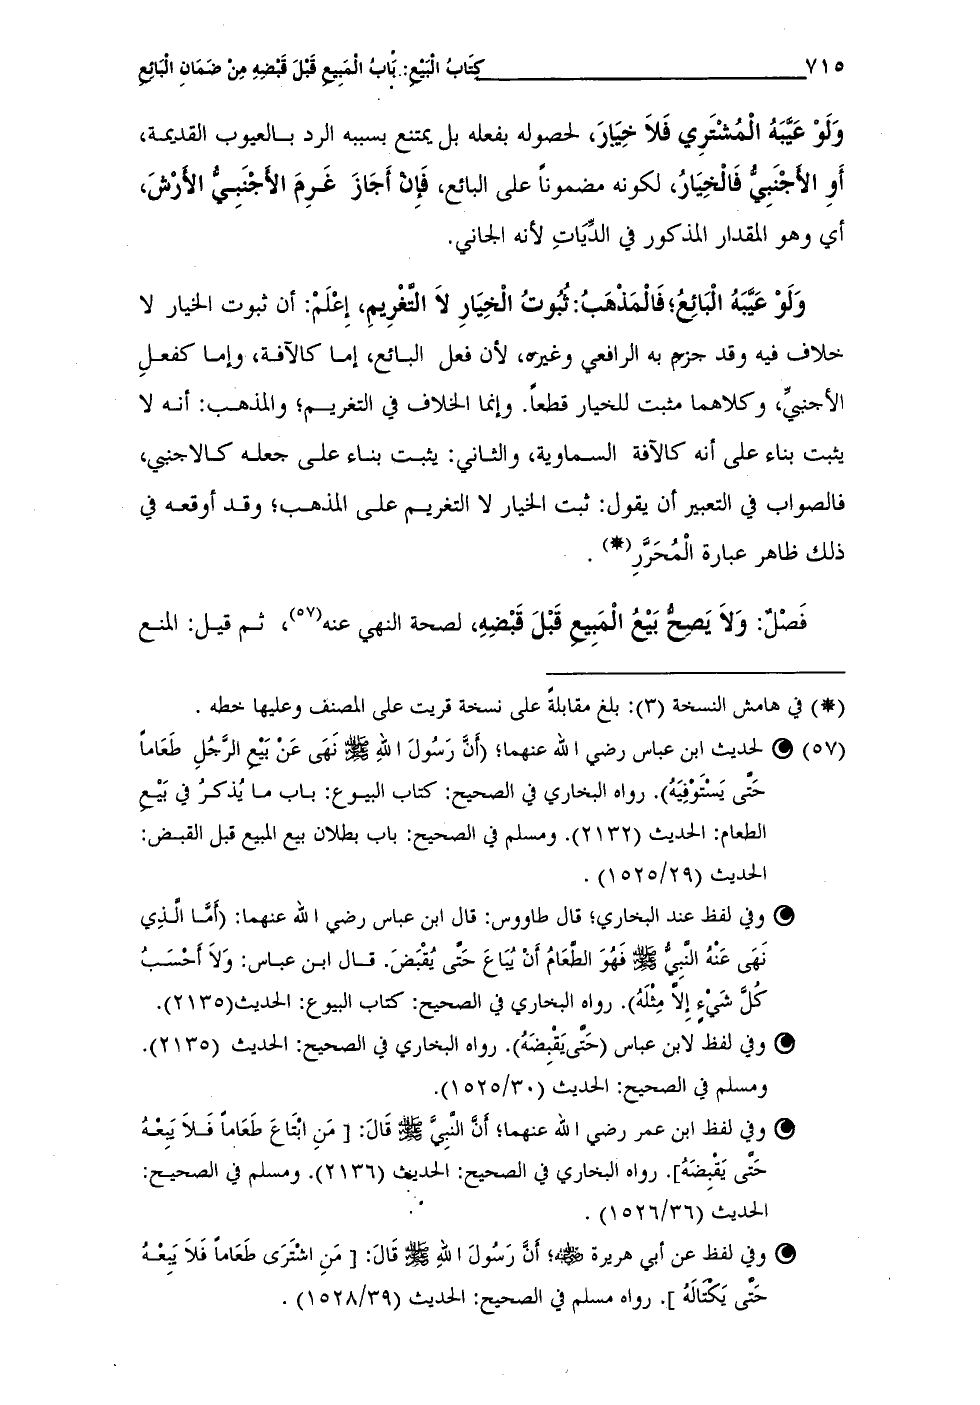 ٧١٥ كِتَابُ الْبَيْعِ: بَابُ الْمَبِيعِ قَبْلَ قَبْضِهِ مِنْ ضَمَانِ الْبَائِعِ
وَلَوْ عَيَّبَهُ الْمُشْتَرِي فَلاَ خِيَارَ، لحصوله بفعله بل يمتنع بسببه الرد بالعيوب القديمة،
أَوِ الأَجْنَبِيُّ فَالْخِيَارُ، لكونه مضموناً على البائع، فَإِنْ أَجَازَ غَرِمَ الأَجْنَبِيُّ الأَرْشَ،
أي وهو المقدار المذكور في الدِّيَاتِ لأنه الجاني.
وَلَوْ عَيَّبَهُ الْبَائِعُ؛ فَالْمَذْهَبُ: ثُبُوتُ الْخِيَارِ لاَ التَّغْرِيمِ، إِعْلَمْ: أن ثبوت الخيار لا
خلاف فيه وقد جزم به الرافعي وغيره، لأن فعل البائع، إما كالآفة، وإما كفعلِ
الأجنبيِّ، وكلاهما مثبت للخيار قطعاً. وإنما الخلاف في التغريم؛ والمذهب: أنه لا
يثبت بناء على أنه كالآفة السماوية، والثاني: يثبت بناء على جعله كالاجنبي،
فالصواب في التعبير أن يقول: ثبت الخيار لا التغريم على المذهب؛ وقد أوقعه في
ذلك ظاهر عبارة الْمُحَرَّرِ(*) .
فَصْلٌ: وَلاَ يَصِحُّ بَيْعُ الْمَبِيعِ قَبْلَ قَبْضِهِ، لصحة النهي عنه(٥٧)، ثم قيل: المنع
(*) في هامش النسخة (٣): بلغ مقابلةً على نسخة قريت على المصنف وعليها خطه .
(٥٧) لحديث ابن عباس رضي الله عنهما؛ (أَنَّ رَسُولَ اللهِ ﷺ نَهَى عَنْ بَيْعِ الرَّجُلِ طَعَاماً
حَتَّى يَسْتَوْفِيَهُ). رواه البخاري في الصحيح: كتاب البيوع: باب ما يُذكرُ في بَيْعِ
الطعام: الحديث (٢١٣٢). ومسلم في الصحيح: باب بطلان بيع المبيع قبل القبض:
الحديث (١٥٢٥/٢٩) .
وفي لفظ عند البخاري؛ قال طاووس: قال ابن عباس رضي الله عنهما: (أَمَّا الَّذِي
نَهَى عَنْهُ النَّبِيُّ ﷺ فَهُوَ الطَّعَامُ أَنْ يُبَاعَ حَتَّى يُقْبَضَ. قال ابن عباس: وَلاَ أَحْسَبُ
كُلَّ شَيْءٍ إِلاَّ مِثْلَهُ). رواه البخاري في الصحيح: كتاب البيوع: الحديث(٢١٣٥).
وفي لفظ لابن عباس (حَتَّى يَقْبِضَهُ). رواه البخاري في الصحيح: الحديث (٢١٣٥).
ومسلم في الصحيح: الحديث (١٥٢٥/٣٠).
وفي لفظ ابن عمر رضي الله عنهما؛ أَنَّ النَّبِيَّ ﷺ قَالَ: [ مَنِ ابْتَاعَ طَعَاماً فَلاَ يَبِعْهُ
حَتَّى يَقْبِضَهُ]. رواه البخاري في الصحيح: الحديث (٢١٣٦). ومسلم في الصحيح:
الحديث (١٥٢٦/٣٦) .
وفي لفظ عن أبي هريرة ﷺ؛ أَنَّ رَسُولَ اللهِ ﷺ قَالَ: [ مَنِ اشْتَرَى طَعَاماً فَلاَ يَبِعْهُ
حَتَّى يَكْتَالَهُ ]. رواه مسلم في الصحيح: الحديث (١٥٢٨/٣٩) .